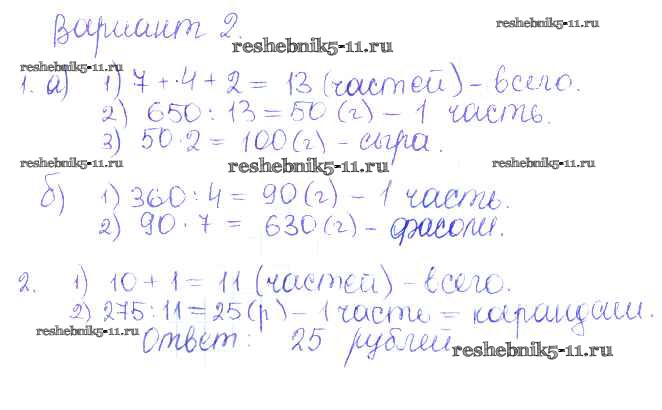 Вариант 2.
reshebnik5-11.ru
reshebnik5-11.ru
reshebnik5-11.ru
1. а) 1) 7 + 4 + 2 = 13 (частей) - всего.
2) 650 : 13 = 50 (г) - 1 часть.
3) 50 · 2 = 100 (г) - сыра.
reshebnik5-11.ru
reshebnik5-11.ru
reshebnik5-11.ru
б) 1) 360 : 4 = 90 (г) - 1 часть.
2) 90 · 7 = 630 (г) - фасоли.
2. 1) 10 + 1 = 11 (частей) - всего.
2) 275 : 11 = 25 (р) - 1 часть = карандаш.
reshebnik5-11.ru
Ответ: 25 рублей
reshebnik5-11.ru